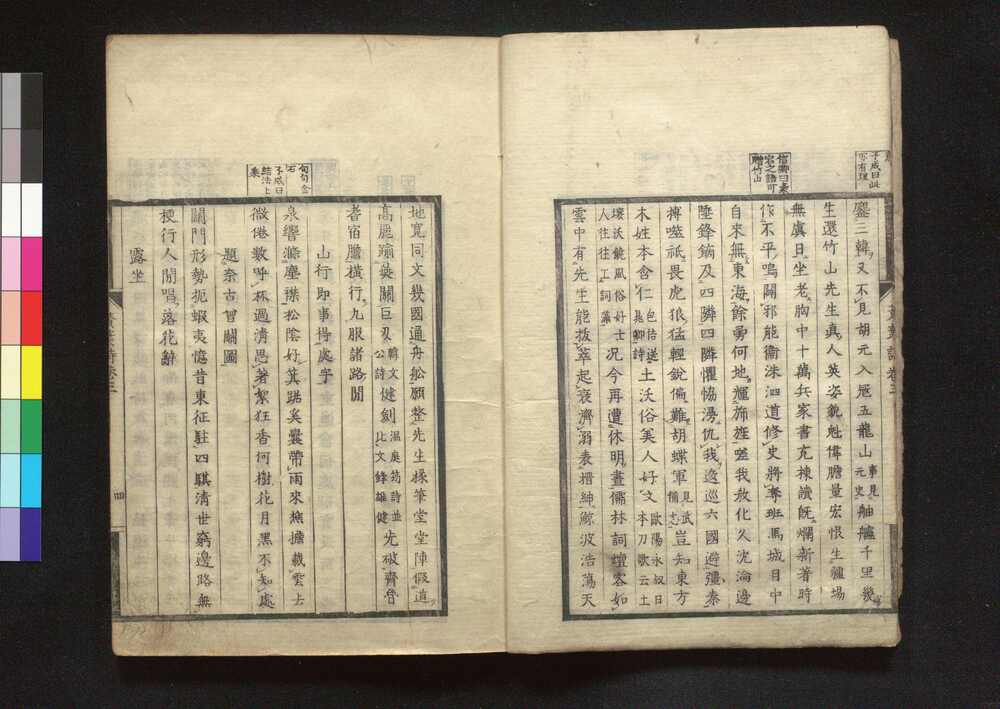 子成曰此
亦有理
鏖三韓又不見胡元入冦五龍山事見元史舳艫千里幾
生還竹山先生真人英姿貌魁偉膽量宏恨生疆場
無虞日坐老胸中十萬兵家書充棟讀既爛新著時
作不平鳴關邪能衞洙泗道修史將奪班馬城目中
自來無東海餘勇何地輝旆旌嗟我赦化久沈淪邊
陲鋒鏑及四隣四隣懼恊湯仇我逡巡六國避彊秦
搏噬祇畏虎狼猛輕銳偏難胡蝶軍見武備志豈知東方
木姓本含仁包佶送晁卿詩土沃俗美人好文歐陽永叔日本刀歌云土
壤沃饒風俗好士人往往工詞藻況今再遭休明晝儒林詞壇客如
雲中有先生能拔萃起衰濟溺表搢紳鯨波浩蕩天
信卿曰
贈竹山
地寬同文幾國通舟舩願整先生操筆堂堂陣假道
高麗瑜羮關巨刄韓文公詩健劍溫庭筠詩並比文鋒雄健先破齊魯
耆宿膽橫行九服諸路閒
山行即事得處字
句句含
子成曰
結法上
泉響滌塵襟松陰好箕踞奚嚢帶雨來樵擔載雲去
微倦數呼杯過清思著絮狂香何樹花月黑不知處
題奈古曽關圖
關門形勢扼蝦夷憶昔東征駐四騏清世窮邊路無
梗行人閒唱落花辭
露坐
四